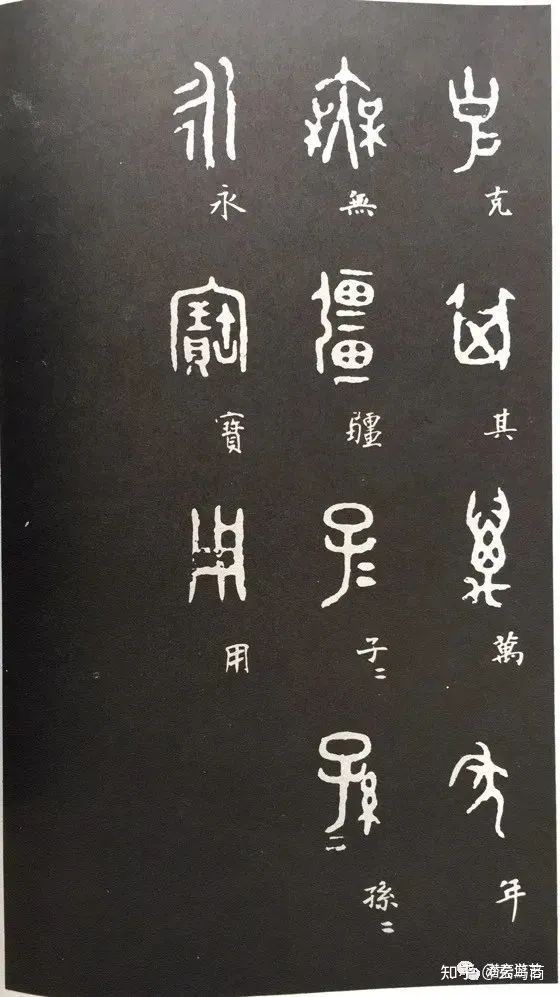 克其萬年
無疆子二孫二
永寶用
知乎